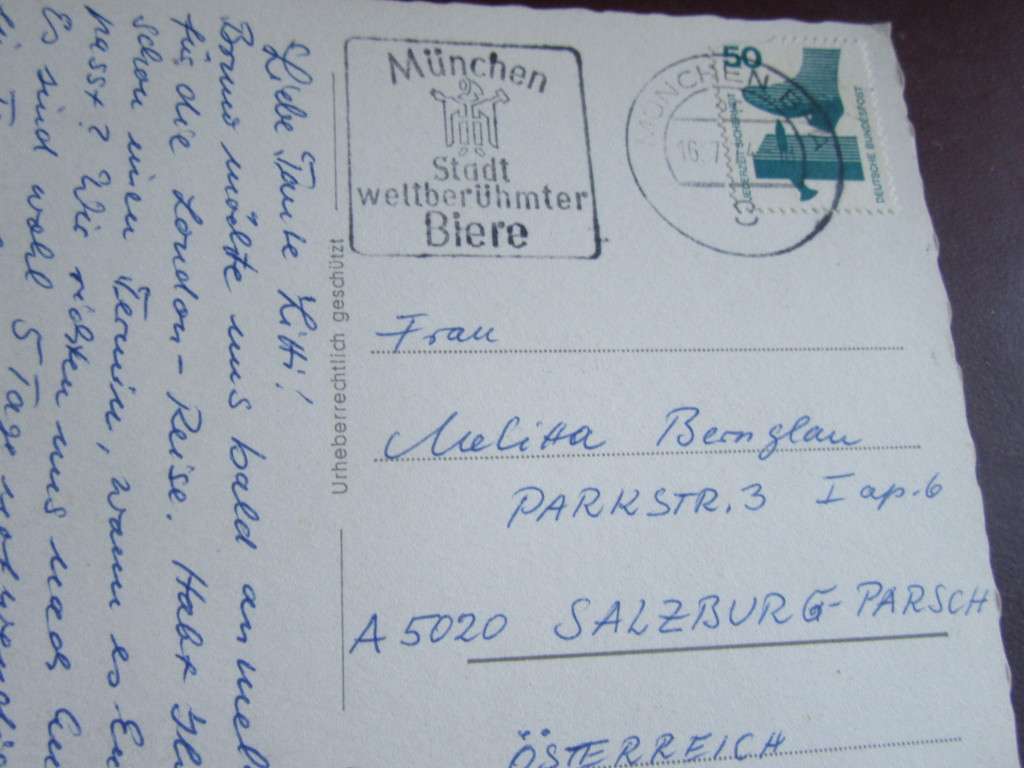 München
Stadt
weltberühmter
Biere
MÜNCHEN
16. 7.
50
JEDERZEIT SICHERHEIT
DEUTSCHE BUNDESPOST
Urheberrechtlich geschützt
Liebe Tante Litti!
Bruno möchte uns bald anmel
für die London-Reise. Habt Ih
schon einen Termin, wann es Eu
passt? Wir richten uns nach Eu
Es sind wohl 5 Tage notwendig
Frau
Melitta Bernglau
PARKSTR. 3 I ap. 6
A 5020 SALZBURG-PARSCH
ÖSTERREICH